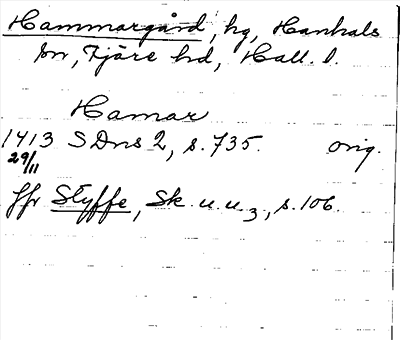 Hammargård, hg, Hanhals
sn, Fjäre hd, Hall. l.
Hamar
1413 SDns 2, s. 735. orig.
29/11
Jfr Styffe, Sk. u. u. 3, s. 106.